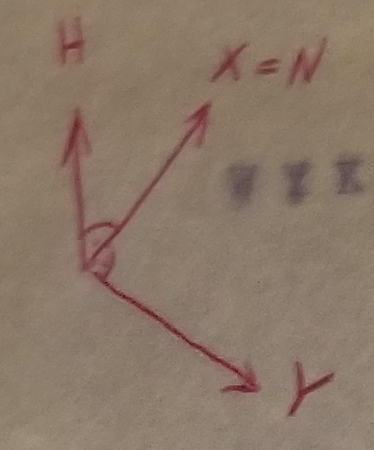 H
X = N
Y